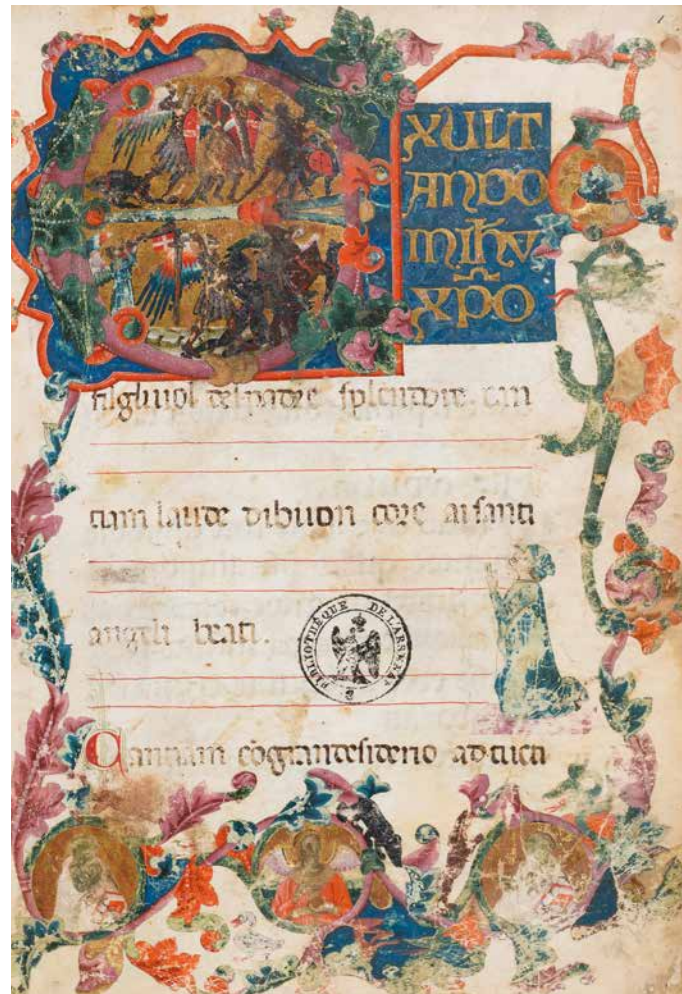 1
EXULT
ANDO
INIHU
XPO
filgliuol del padre splendore. can
tiam laude dibuon core aisancti
angeli beati.
BIBLIOTHÈQUE DE L'ARSENAL
Cantiam cograndesiderio adtucti